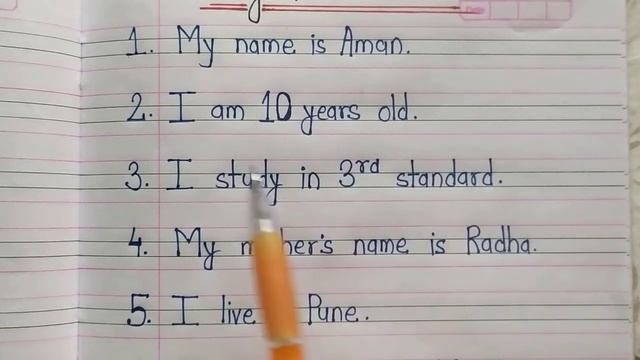 1. My name is Aman.
2. I am 10 years old.
3. I study in 3rd standard.
4. My name is Radha.
5. I live Pune.